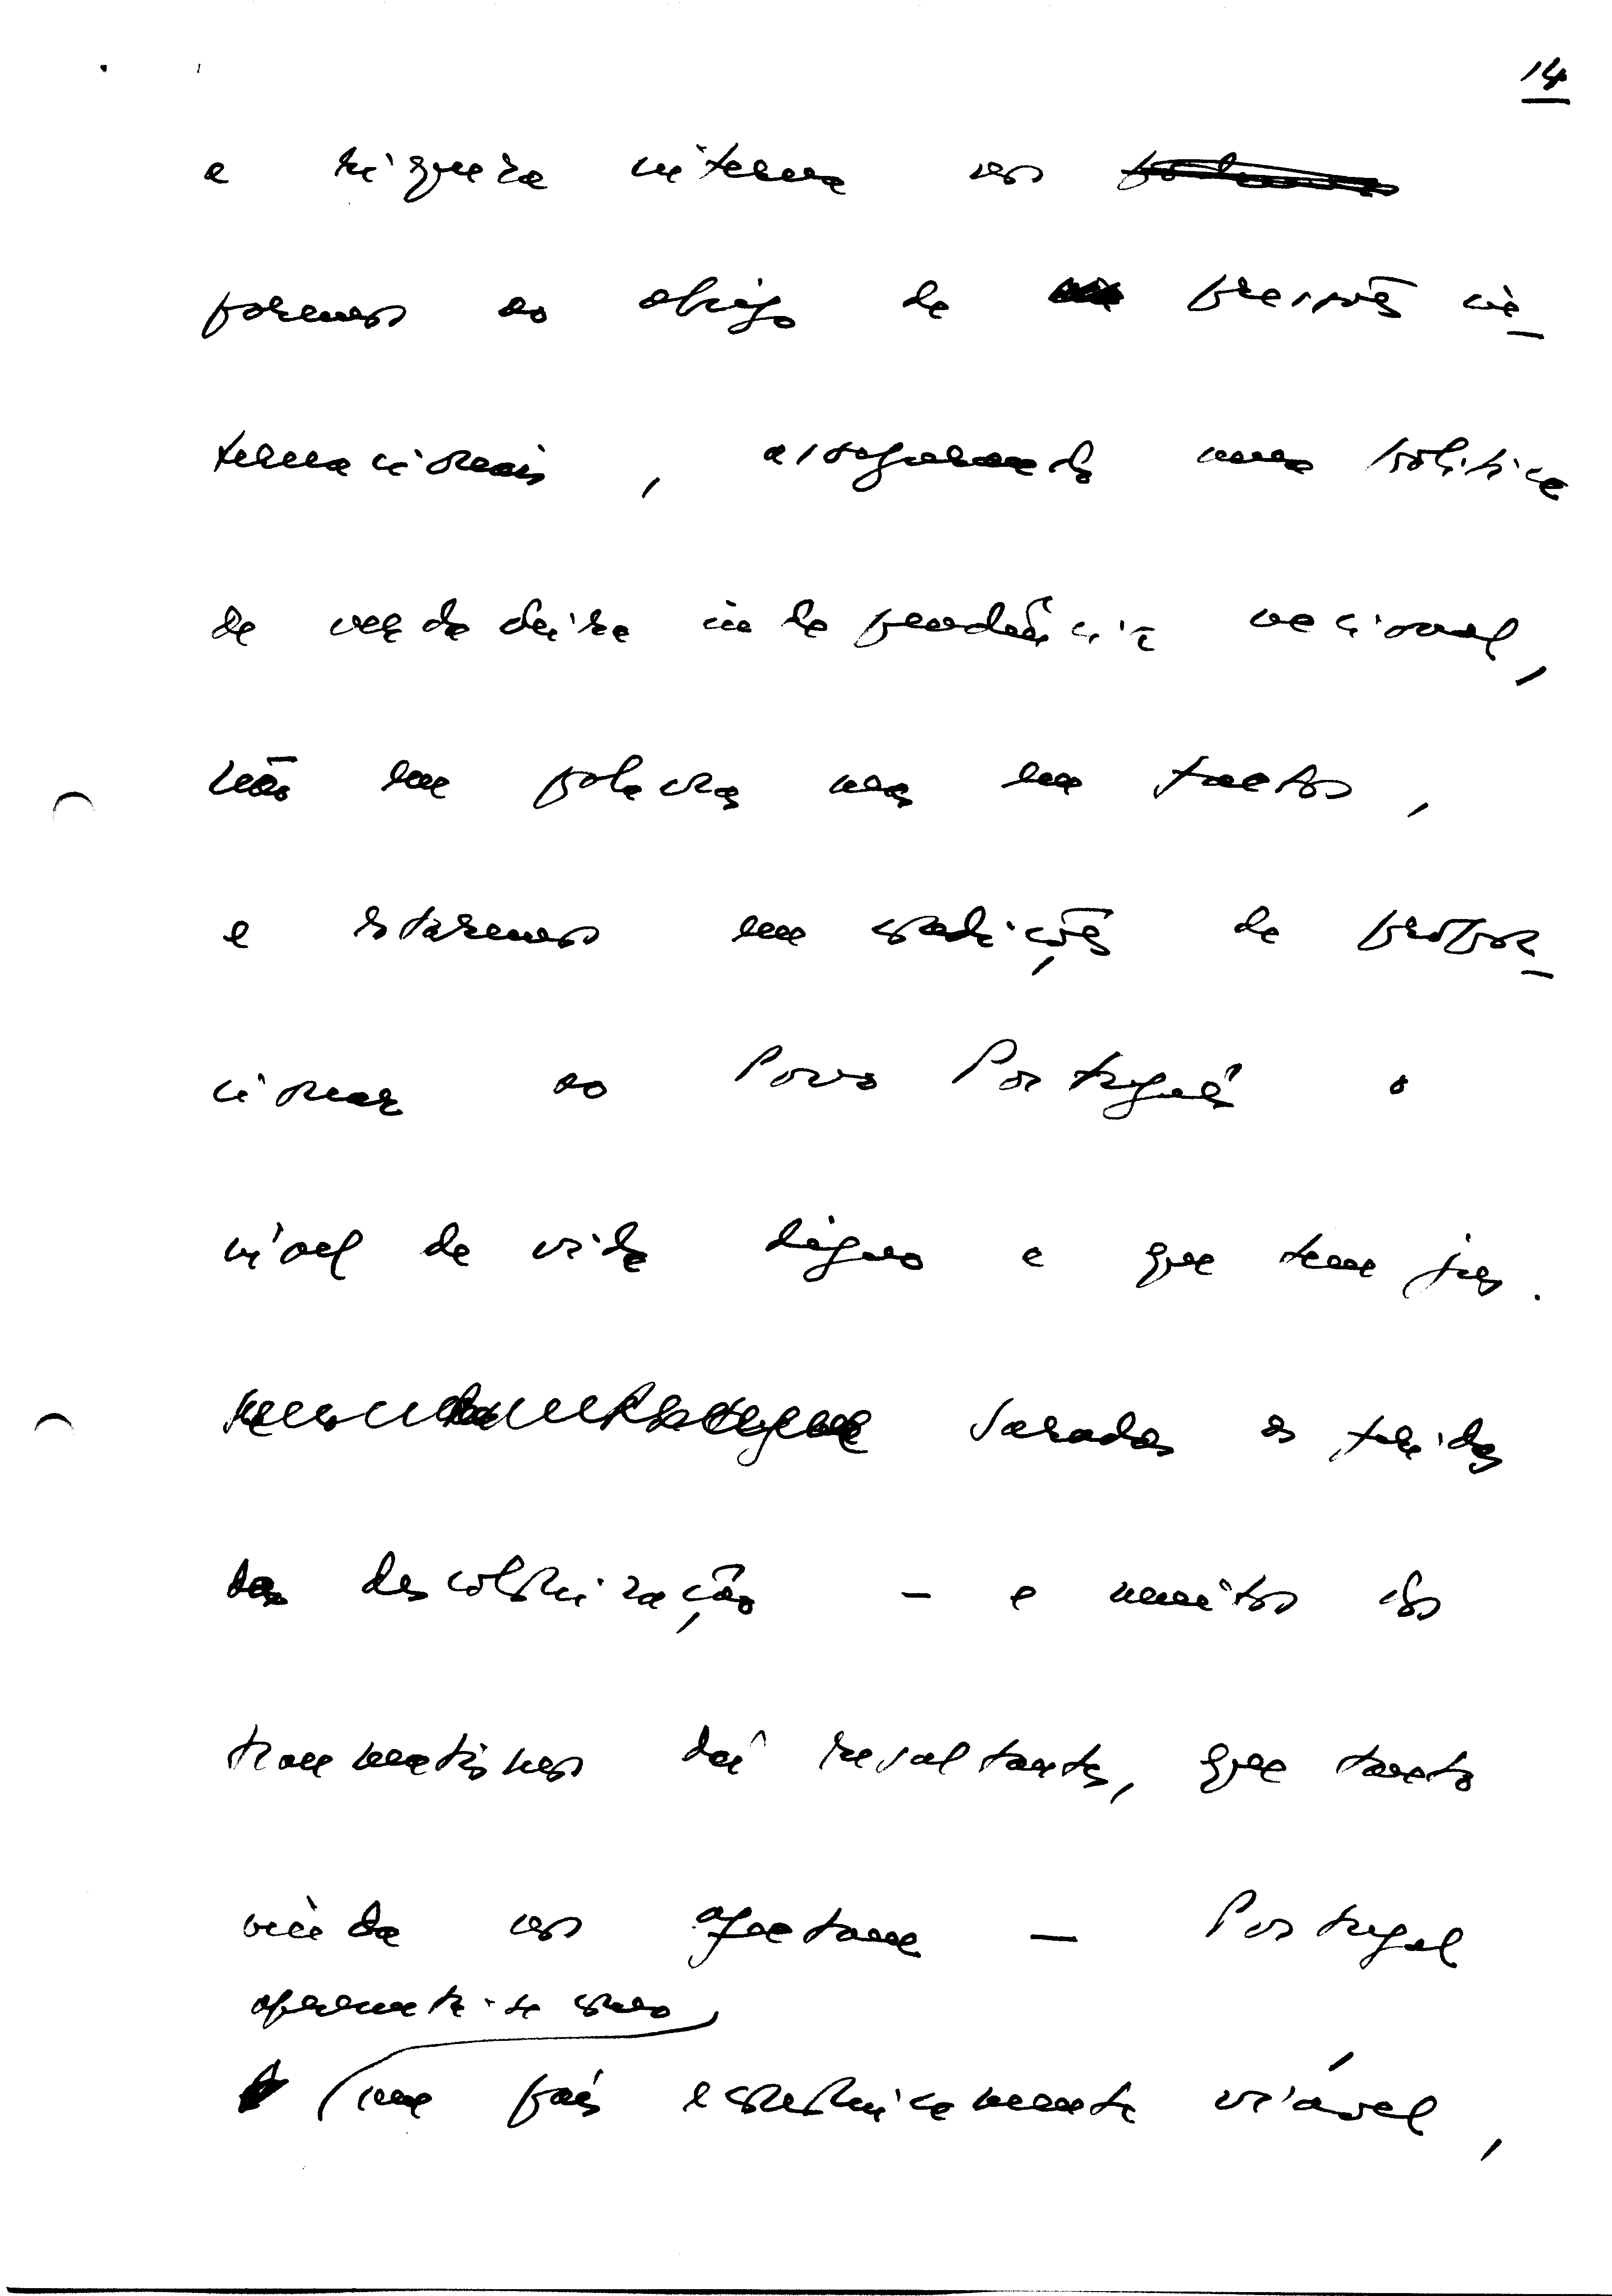 14
a riqueza interna nos
pormos ao abrigo de pressões in-
ternacionais, assegurando uma política
de verdadeira independência nacional,
não em palavras mas em factos,
e estaremos em condições de propor-
cionar ao Povo Português o
nível de vida digno a que tem jus.
Saradas as feridas
da descolonização - e muitos dos
traumatismos daí resultantes, que tanto
ainda nos afectam - Portugal
apresenta-se como
um país economicamente viável,